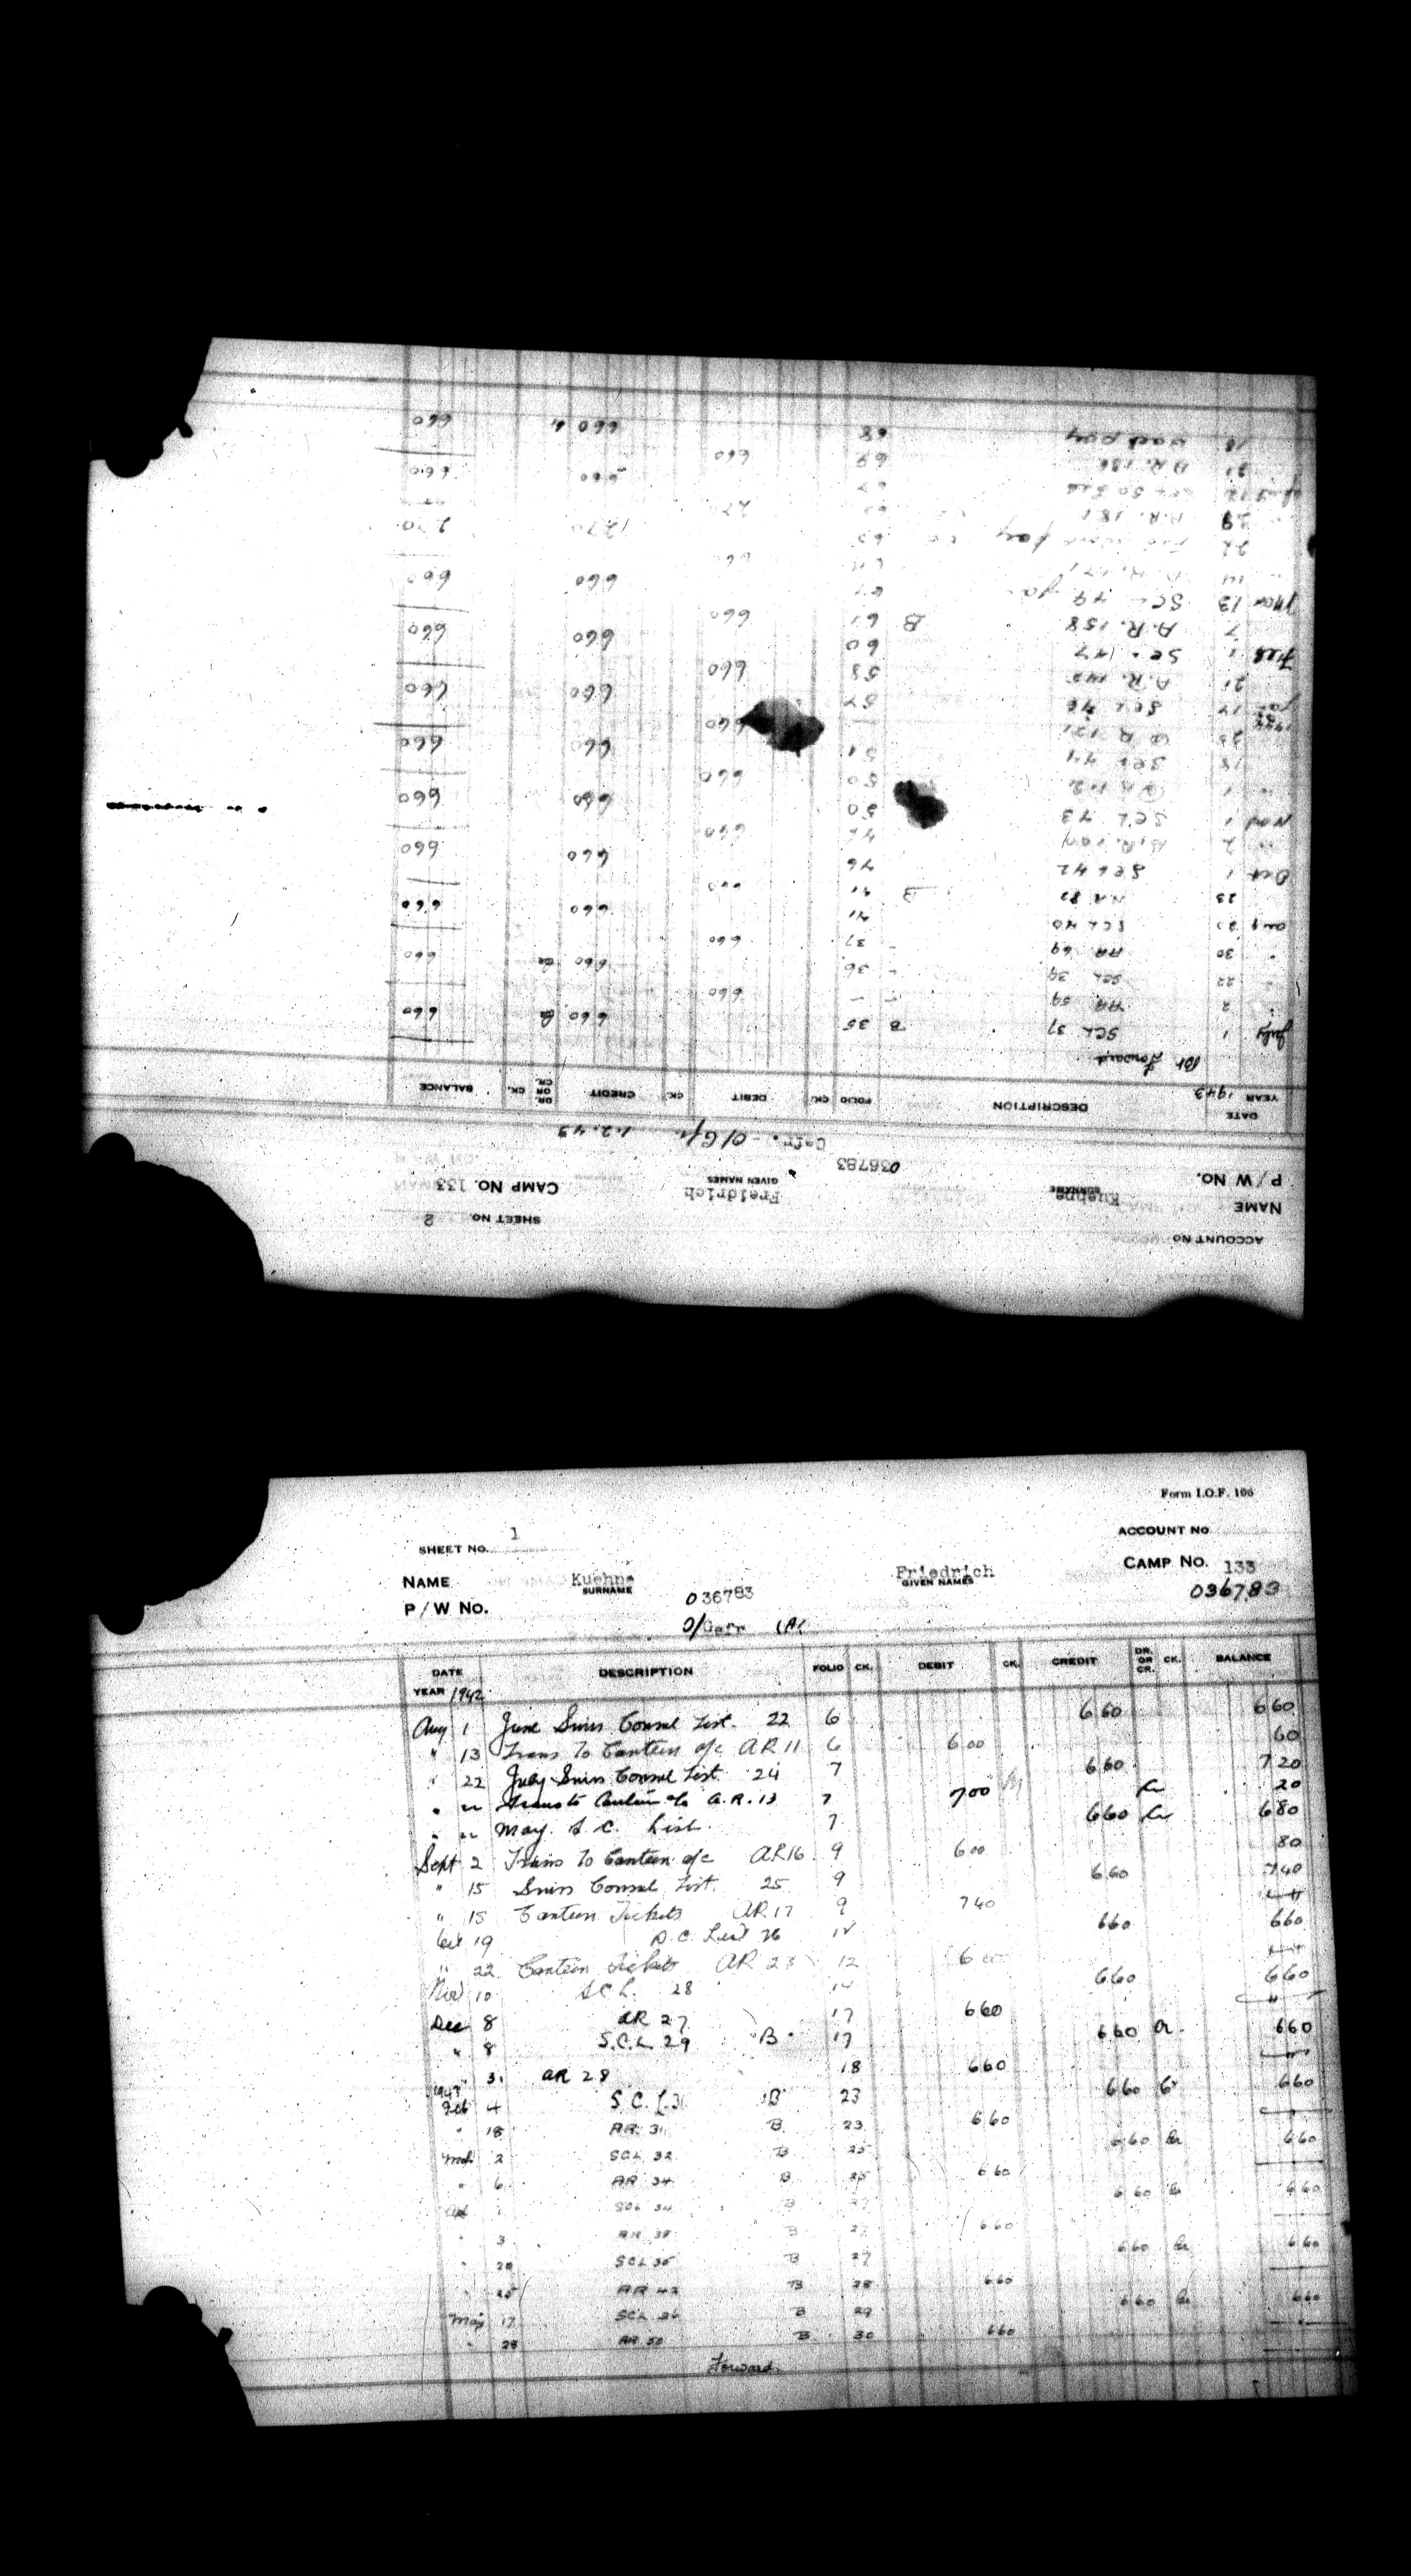 Form I.O.F. 106
SHEET No. 1
ACCOUNT No
NAME Kuehne Friedrich CAMP No. 133
SURNAME GIVEN NAMES
P/W No. 036783 036783
O/Gefr
DATE DESCRIPTION FOLIO CK. DEBIT CK. CREDIT DR. OR CR. CK. BALANCE
YEAR 1942
Aug 1 June Swiss Consul List. 22 6 6 60 6 60
" 13 Trans To Canteen a/c AR 11 6 6 00 60
" 22 July Swiss Consul List 24 7 6 60 7 20
" " Trans to Canteen a/c A.R. 13 7 7 00 Cr 20
" " May. S.C. List. 7 6 60 Cr 6 80
Sept 2 Trans To Canteen a/c AR 16 9 6 00 80
" 15 Swiss Consul List. 25 9 6 60 7 40
" 15 Canteen Tickets AR 17 9 7 40
Oct 19 S.C. List 26 12 6 60 6 60
" 22 Canteen Tickets AR 23 12 6
Nov 10 SCL. 28 14 6 60 6 60
Dec 8 AR 27 17 6 60
" 8 S.C.L 29 B 17 6 60 Cr. 6 60
AR 28 18 6 60
1943
Feb 4 S.C.L 31 B 23 6 60 Cr 6 60
" 18 AR 31 B 23 6 60
Mar 2 SCL 32 B 25 6 60 Cr 6 60
" 6 AR 34 B 25 6 60
Apl 1 SCL 34 B 27 6 60 Cr 6 60
" 3 AR 38 B 27 6 60
" 20 SCL 35 B 27 6 60 Cr 6 60
" 25 AR 42 B 28 6 60
May 17 SCL 36 B 29 6 60 Cr 6 60
" 28 AR 50 B 30 6 60
Forward
ACCOUNT No
SHEET No. 2
NAME Kuehne Freidrich CAMP No. 133
SURNAME GIVEN NAMES
P/W No. 036783
Gefr. - O/Gfr. 1.2.43
DATE DESCRIPTION FOLIO CK. DEBIT CK. CREDIT DR. OR CR. CK. BALANCE
YEAR 1943
Bt Forward
July 1 SCL 37 B 35 6 60 Cr 6 60
" 2 AR 59 6 60
" 22 SCL 39 36 6 60 Cr 6 60
" 30 AR 69 37 6 60
Aug 20 SCL 40 41 6 60 6 60
23 AR 82 B 41
Oct 1 SCL 42 46 6 60 6 60
" 2 A.R. 100 46 6 60
Nov 1 SCL 43 50 6 60 6 60
" 1 AR 112 50 6 60
18 SCL 44 51 6 60 6 60
25 AR 121 6 60
1944
Jan 17 SCL 46 57 6 60 6 60
21 A.R. 145 58 6 60
Feb 1 SCL 47 60 6 60 6 60
7 A.R. 158 B 61 6 60
Mar 13 SCL 49 6 60 6 60
14 A.R. 171 6 60
22 pay 2 70 2 70
29 A.R. 181 2 70
SCL 50 67 6 60 6 60
21 A.R. 186 69 6 60
18 pay 68 6 60 6 60